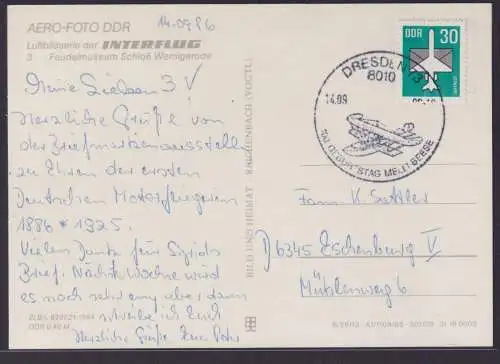 AERO-FOTO DDR
14.09.86
Luftbildserie der INTERFLUG
3 Feudalmuseum Schloß Wernigerode
Meine Lieben 3 V
Herzliche Grüße von
der Briefmarkenausstellg
zu Ehren der ersten
Deutschen Motorfliegerin
1886 * 1925.
Vielen Dank für Sigrids
Brief. Nächste Woche wird
es noch sehr eng aber dann
schreibe ich Euch
Herzliche Grüße Eure
BILD UND HEIMAT REICHENBACH (VOGTL)
DDR 30
DRESDEN
8010
14.09
100. GEBURTSTAG MELLI BEESE
Fam K. Sattler
D 6345 Eschenburg V
Mühlenweg 6